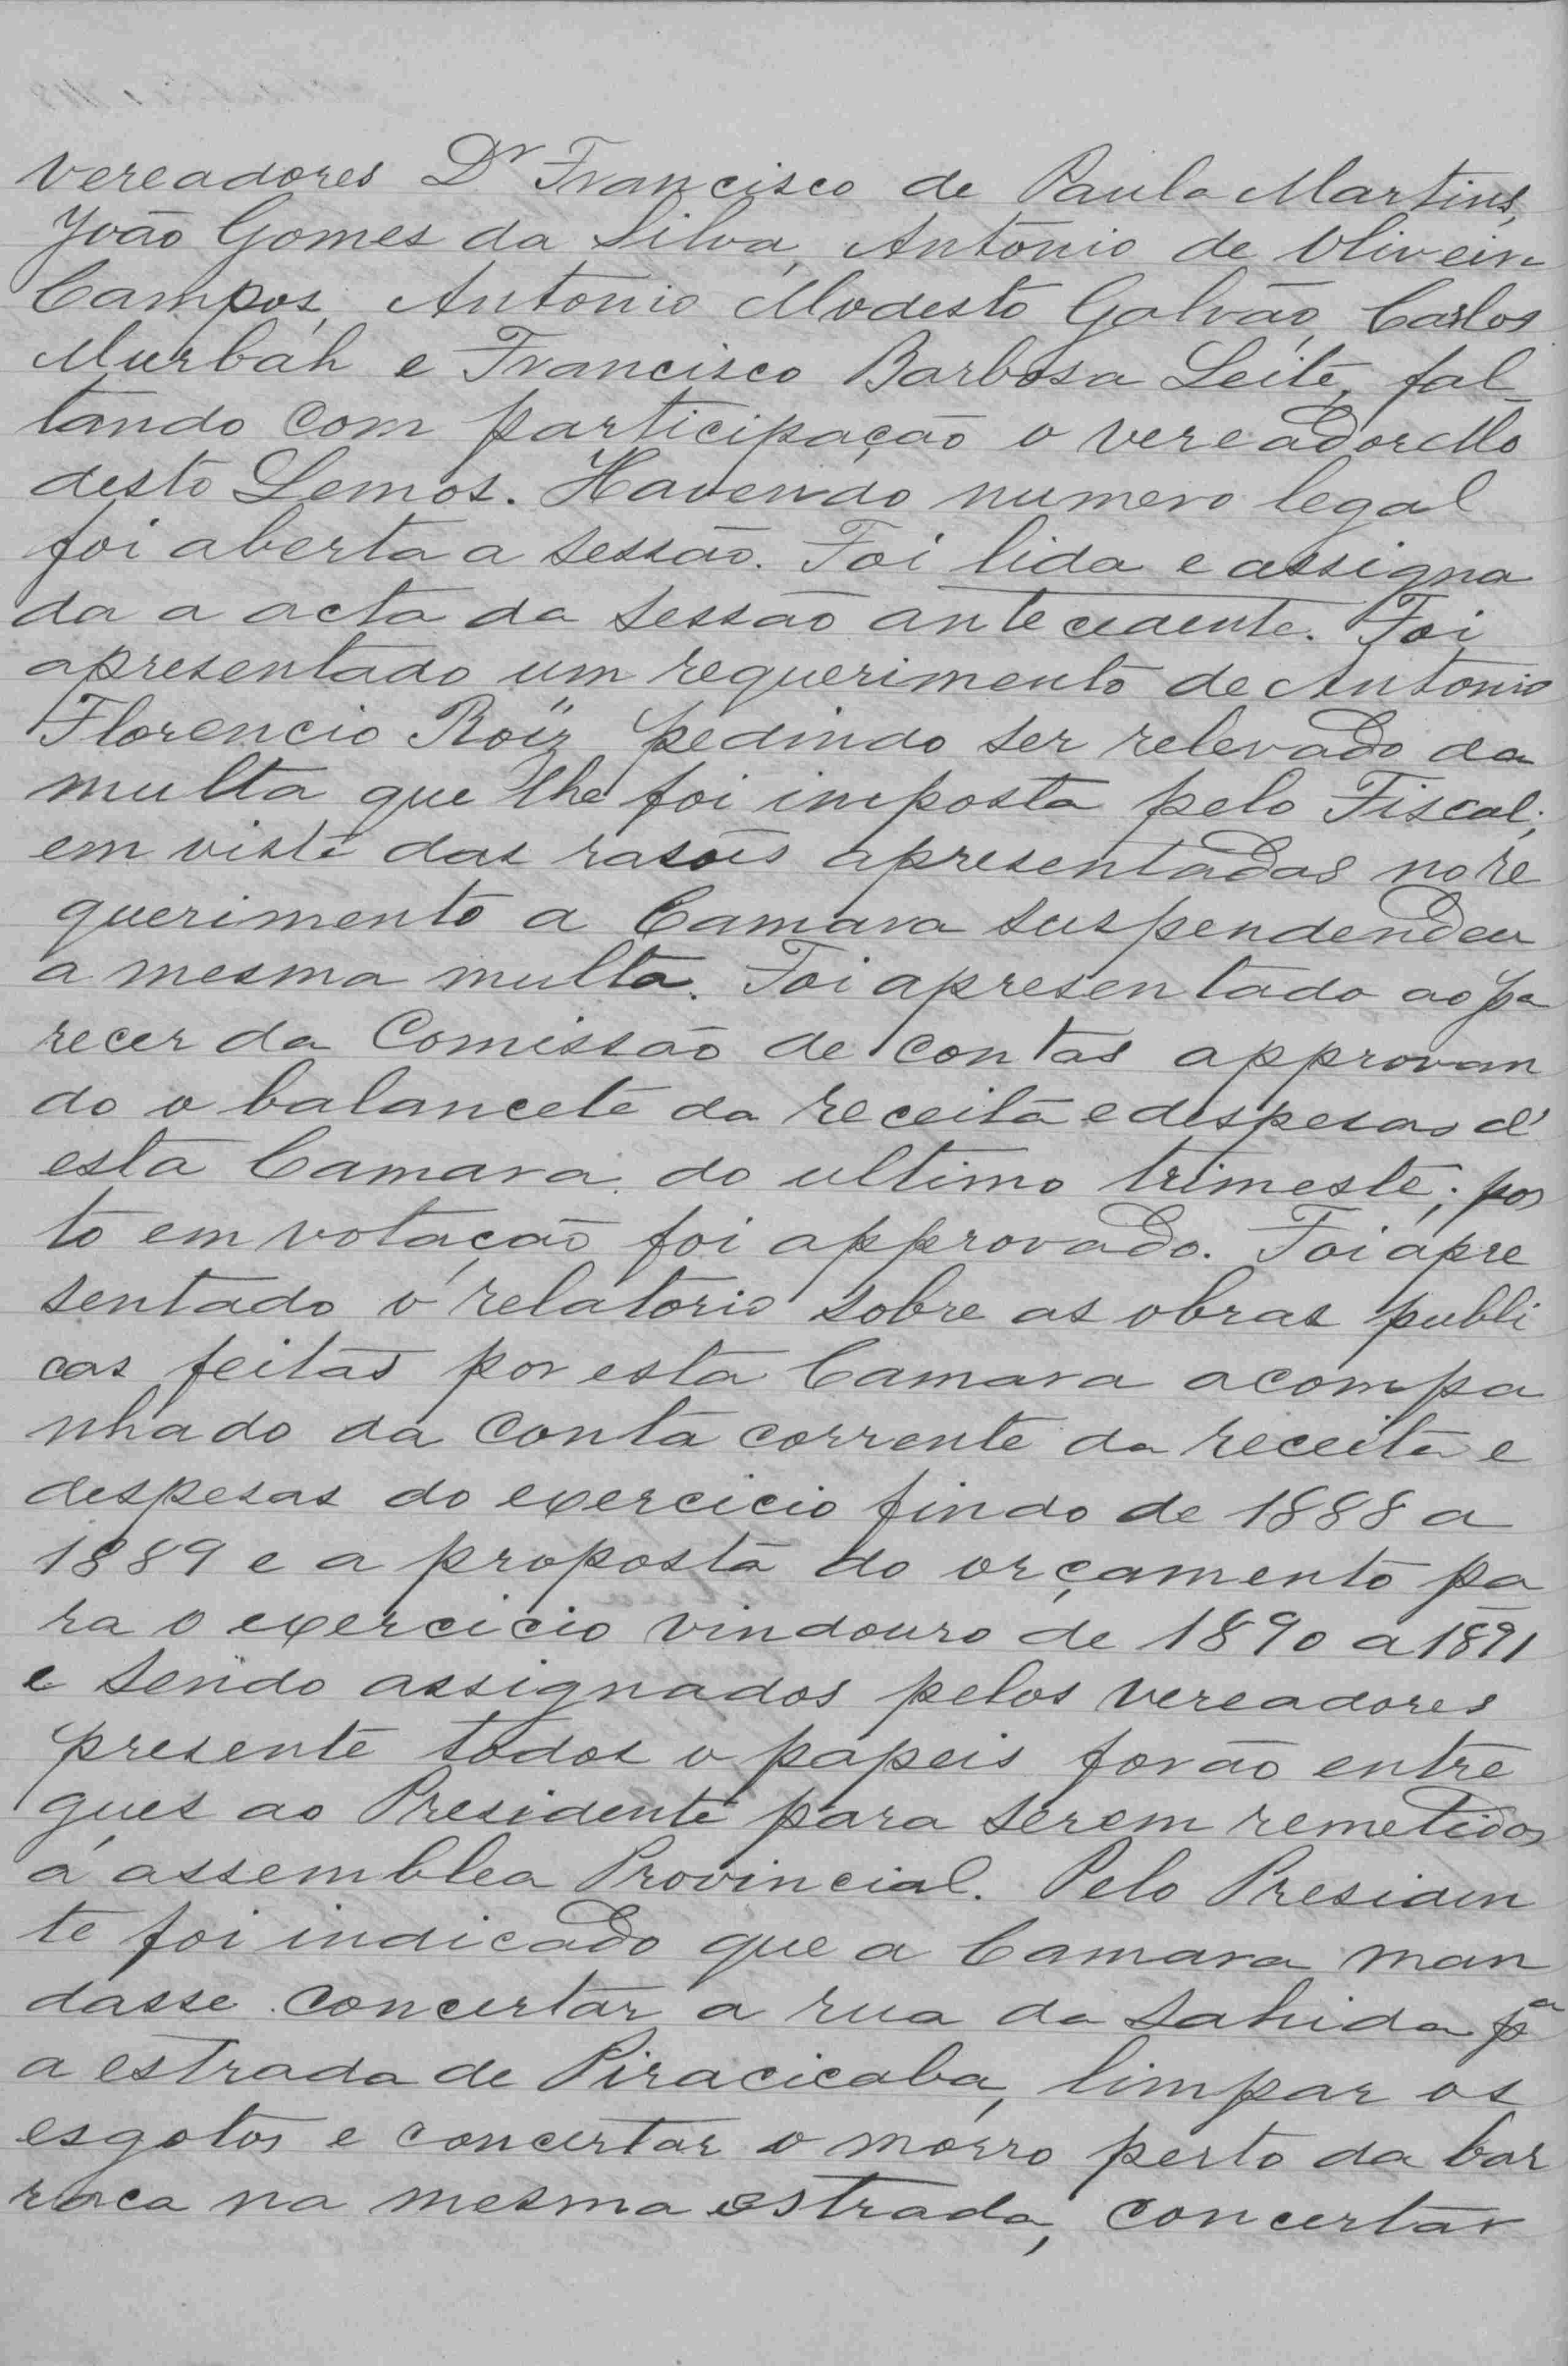 vereadores Dr Francisco de Paula Martins,
João Gomes da Silva, Antonio de Oliveira
Campos, Antonio Modesto Galvão, Carlos
Murbah e Francisco Barbosa Leite, fal
tando com participação o vereador Mo
desto Lemos. Havendo numero legal
foi aberta a sessão. Foi lida e assigna
da a acta da sessão antecedente. Foi
apresentado um requerimento de Antonio
Florencio Roiz pedindo ser relevado da
multa que lhe foi imposta pelo Fiscal;
em viste das rasões apresentadas no re
querimento a Camara suspendendeu
a mesma multa. Foi apresentado ao pa
recer da Comissão de contas approvan
do o balancete da receita e despesas d'
esta Camara do ultimo trimeste; pos
to em votação foi approvado. Foi apre
sentado o relatorio sobre as obras publi
cas feitas por esta Camara acompa
nhado da conta corrente da receita e
despesas do exercicio findo de 1888 a
1889 e a proposta do orçamento pa
ra o exercicio vindouro de 1890 a 1891
e sendo assignados pelos vereadores
presente todos o papeis forão entre
gues ao Presidente para serem remetidos
á assemblea Provincial. Pelo Presiden
te foi indicado que a Camara man
dasse concertar a rua da sahida pa
a estrada de Piracicaba, limpar os
esgotos e concertar o morro perto da bar
raca na mesma estrada, concertar